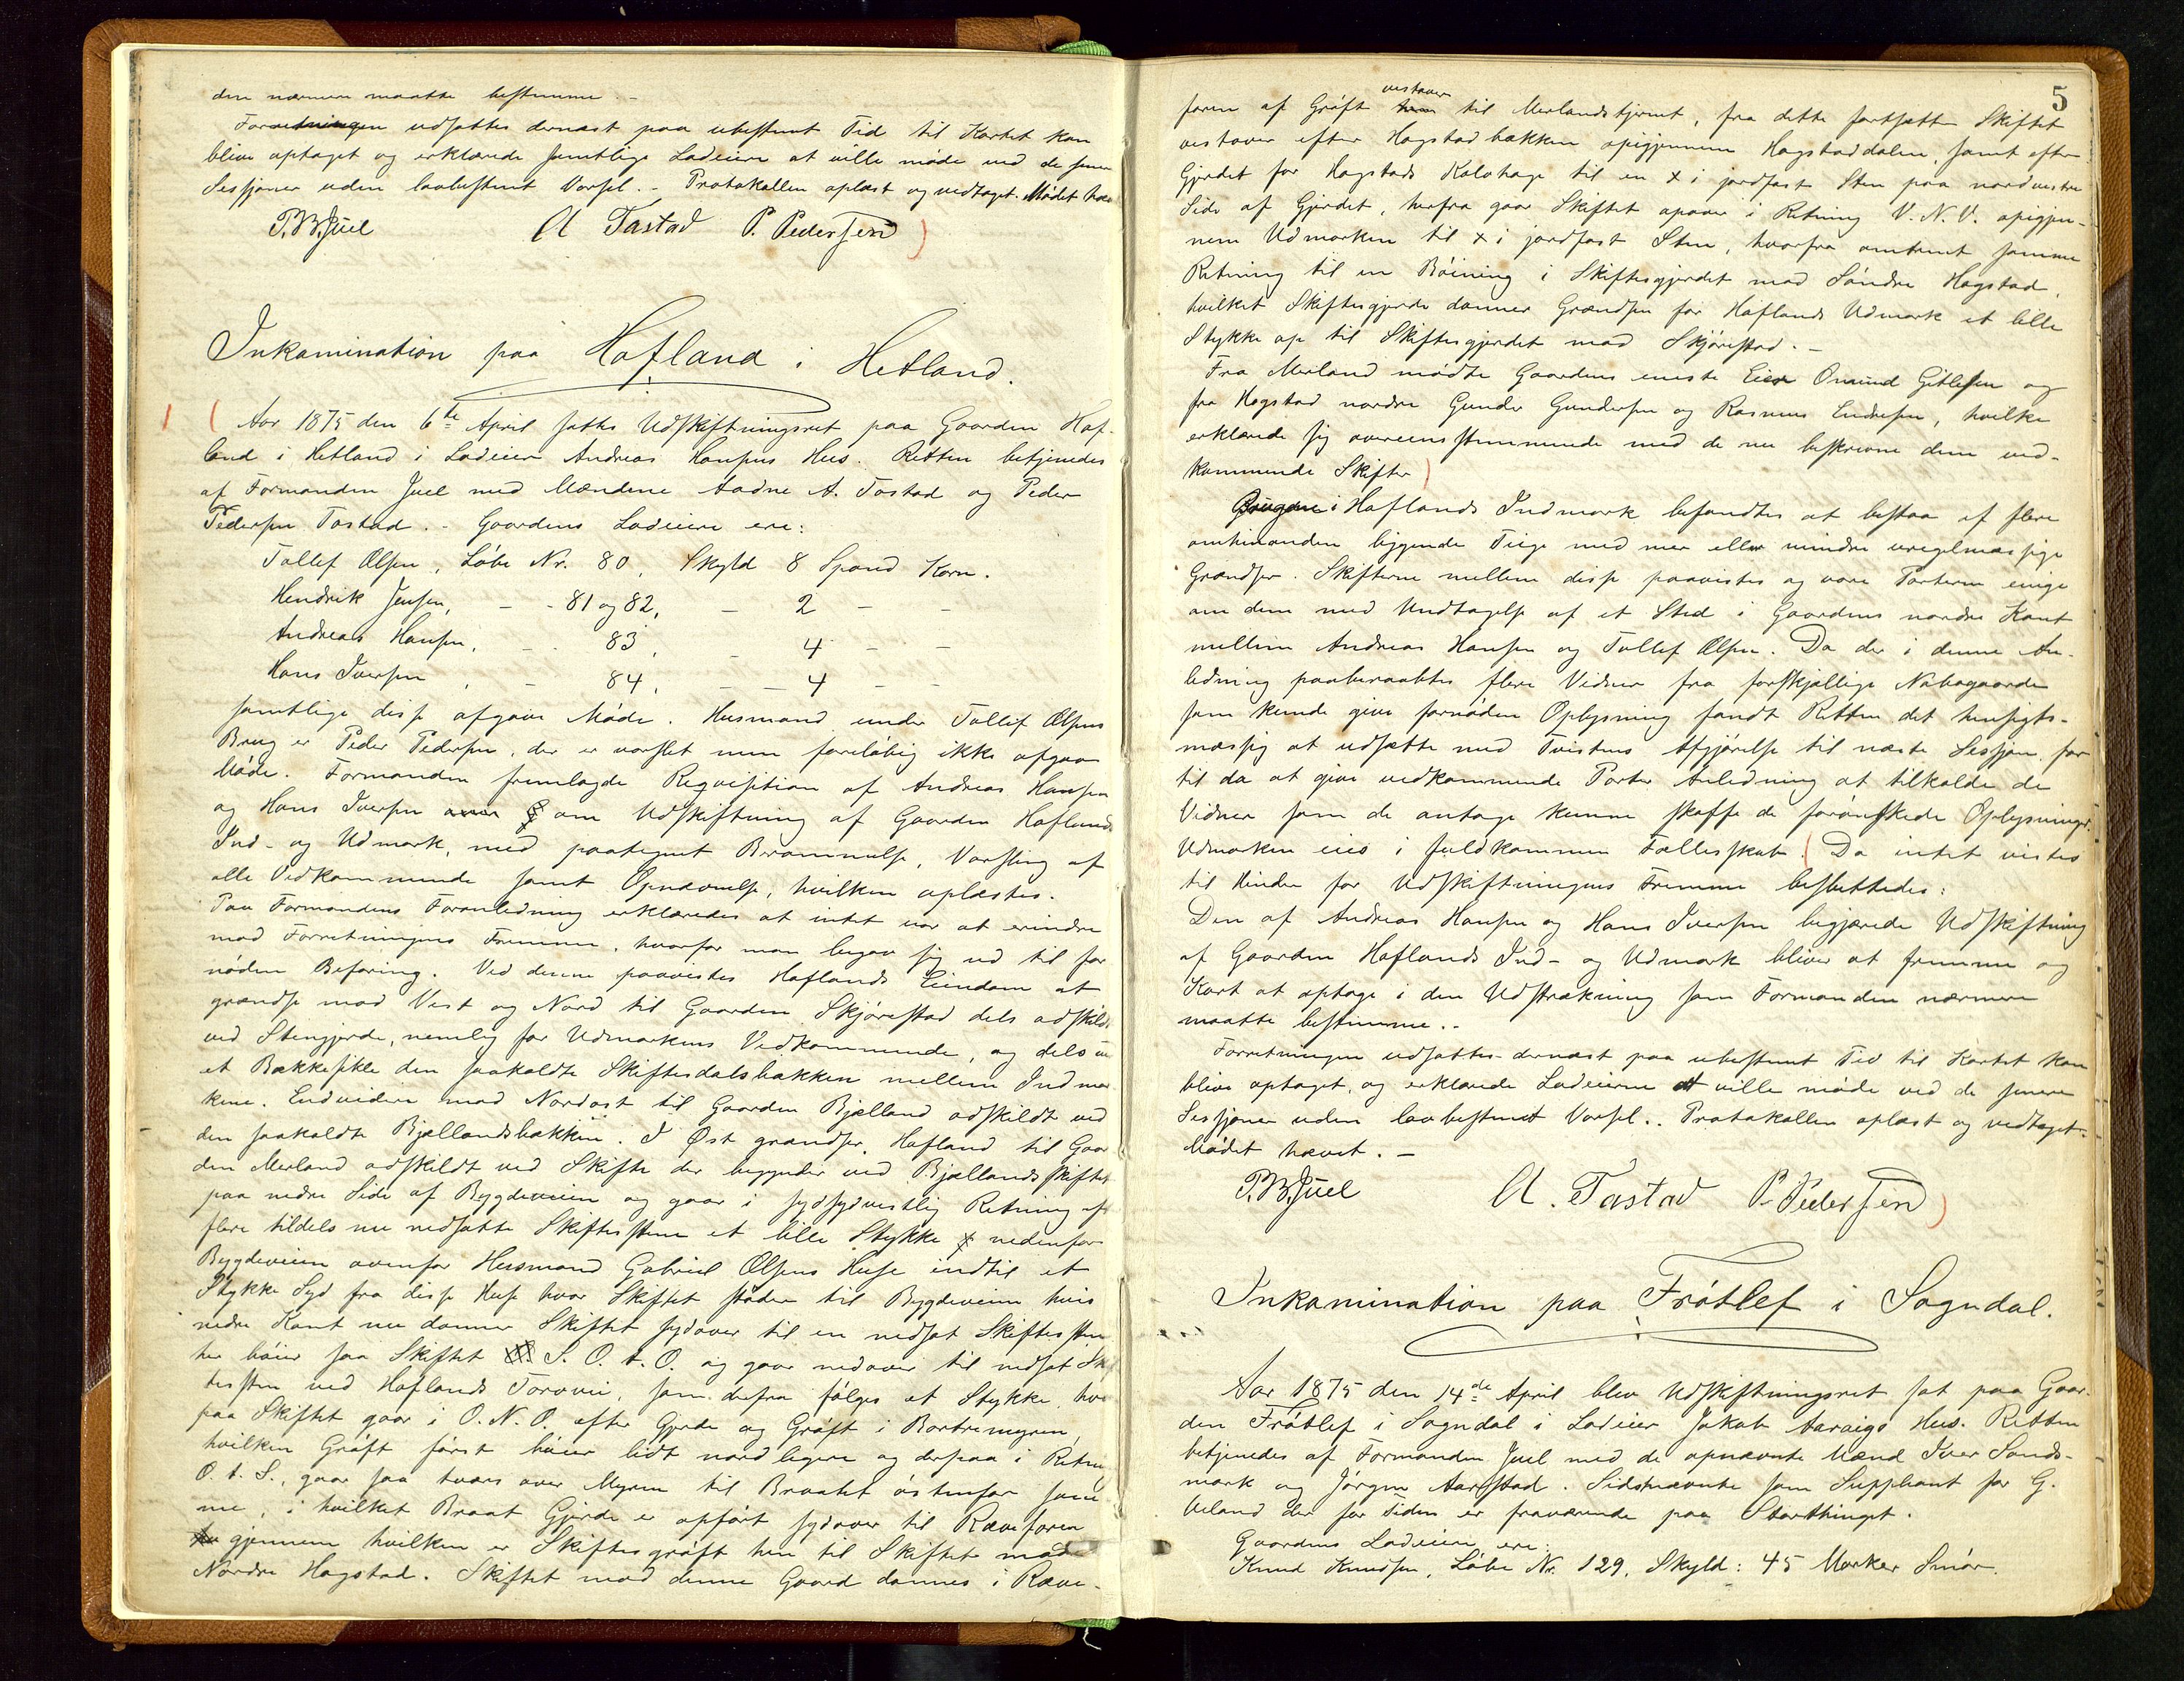 den nærmere maatte bestemme. -
Forretningen udsattes dernæst paa ubestemt Tid til Kartet kan
blive optaget og erklærede samtlige Lodeiere at ville møde ved de senere
Sessjoner uden lovbestemt Varsel. - Protokollen oplæst og vedtaget. Mødet hæv
P.B.Juel A Tastad P. Pedersen)
Inkamination paa Hafland i Hetland.
1 ( Aar 1875 den 6te April sattes Udskiftningsret paa Gaarden Haf-
land i Hetland i Lodeier Andreas Hansens Hus. Retten betjenedes
af Formanden Juel med Mændene Aadne A. Tastad og Peder
Pedersen Tastad. - Gaardens Lodeiere ere:
Tollef Olsen, Løbe Nr. 80, Skyld 8 Spand Korn.
Hendrik Jensen, - - 81 og 82, - 2 - -
Andreas Hansen, - - 83, - 4 - -
Hans Iversen, - - 84, - 4 - -
samtlige disse afgave Møde. Husmand under Tollef Olsens
Brug er Peder Pedersen, der er varslet men foreløbig ikke afgav
Møde. Formanden fremlagde Reqvisition af Andreas Hansen
og Hans Iversen om Udskiftning af Gaarden Haflands
Ind- og Udmark, med paategnet Berammelse, Varsling af
alle Vedkommende samt Opnævnelse, hvilken oplæstes.
Paa Formandens Foranledning erklæredes at intet var at erindre
mod Forretningens Fremme, hvorfor man begav sig ud til for
nøden Befaring. Ved denne paavistes Haflands Eiendom at
grændse mod Vest og Nord til Gaarden Skjørestad dels adskildt
ved Stengjerde, nemlig for Udmarkens Vedkommende, og dels ve
et Bækkesikle den saakaldte Skiftesdalsbækken mellem Indmar
kene. Endvidere mod Nordost til Gaarden Bjelland adskildt ved
den saakaldte Bjellandsbækken. I Øst grændser Hafland til Gaar
den Merland adskildt ved Skifte der begynder ved Bjellandsskiftet
paa nedre Side af Bygdeveien og gaar i sydsydvestlig Retning af
flere tildels nu nedsatte Skiftesstene et lille Stykke nedenfor
Bygdeveien ovenfor Husmand Gabriel Olsens Huse indtil et
Stykke Syd fra disse Huse hvor Skiftet støder til Bygdeveien hvis
nedre Kant nu danner Skiftet sydover til en nedsat Skiftessten
her bøier saa Skiftet S. O. t. O. og gaar nedover til nedsat Sk
tessten ved Haflands Torvvei, som derfra følges et Stykke, hvor
paa Skiftet gaar i O. N. O. efter Gjerde og Grøft i Bortremyren,
hvilken Grøft først bøier lidt nordligere og derpaa i Retni
O. t. S., gaar saa tvers over Myren til Braatet østenfor sam
me, i hvilket Braat Gjerde er opført sydover til Ræveforen
gjennem hvilken er Skiftesgrøft hen til Skiftet mod
Nordre Hagstad. Skiftet mod denne Gaard dannes i Ræve-
5
foren af Grøft vestover til Merlandstjernet, fra dette fortsætter Skiftet
vestover efter Hagstadbækken opigjennem Hagstaddalen, samt efter
Gjerdet for Hagstads Kalvhage til en x i jordfast Sten paa nordvestre
Side af Gjerdet, herfra gaar Skiftet opover i Retning V. N. V. opigjen-
nem Udmarken til x i jordfast Sten, hvorfra omtrent samme
Retning til en Bøining i Skiftesgjerdet mod Søndre Hagstad,
hvilket Skiftesgjerde danner Grændsen for Haflands Udmark et lille
Stykke op til Skiftesgjerdet mod Skjørestad. -
Fra Merland mødte Gaardens eneste Eier Omund Gitlesen og
fra Hagstad nordre Gunder Gundersen og Rasmus Endresen, hvilke
erklærede sig overeensstemmende med de nu beskrevne dem ved-
kommende Skifter)
Brugene i Haflands Indmark befandtes at bestaa af flere
omhinanden liggende Teige med mer eller mindre uregelmæssige
Grændser. Skifterne mellem disse paavistes og vare Parterne enige
om dem med Undtagelse af et Sted i Gaardens nordre Kant
mellem Andreas Hansen og Tollef Olsen. Da der i denne An-
ledning paaberaabtes flere Vidner fra forskjellige Nabogaarde
som kunde give fornøden Oplysning fandt Retten det hensigts-
mæssig at udsætte med Tvistens Afgjørelse til næste Sessjon for
til da at give vedkommende Parter Anledning at tilkalde de
Vidner som de antage kunne skaffe de forønskede Oplysninger.
Udmarken eies i fuldkommen Fællesskab. (Da intet vistes
til Hinder for Udskiftningens Fremme besluttedes:
Den af Andreas Hansen og Hans Iversen begjærede Udskiftning
af Gaarden Haflands Ind- og Udmark bliver at fremme og
Kart at optage i den Udstrækning som Formanden nærmere
maatte bestemme. -
Forretningen udsattes dernæst paa ubestemt Tid til Kartet kan
blive optaget, og erklærede Lodeierne at ville møde ved de senere
Sessjoner uden lovbestemt Varsel. - Protokollen oplæst og vedtaget.
Mødet hævet. -
P.B.Juel A. Tastad P. Pedersen)
Inkamination paa Frøtlef i Sogndal.
Aar 1875 den 14de April blev Udskiftningsret sat paa Gaar-
den Frøtlef i Sogndal i Lodeier Jakob Aaraigs Hus. Retten
betjenedes af Formanden Juel med de opnævnte Mænd Iver Sands-
mark og Jørgen Aarstad. Sidstnævnte som Suppleant for G.
Ueland der for Tiden er fraværende paa Storthinget.
Gaardens Lodeiere ere:
Knud Knudsen, Løbe Nr. 129, Skyld: 45 Marker Smør.